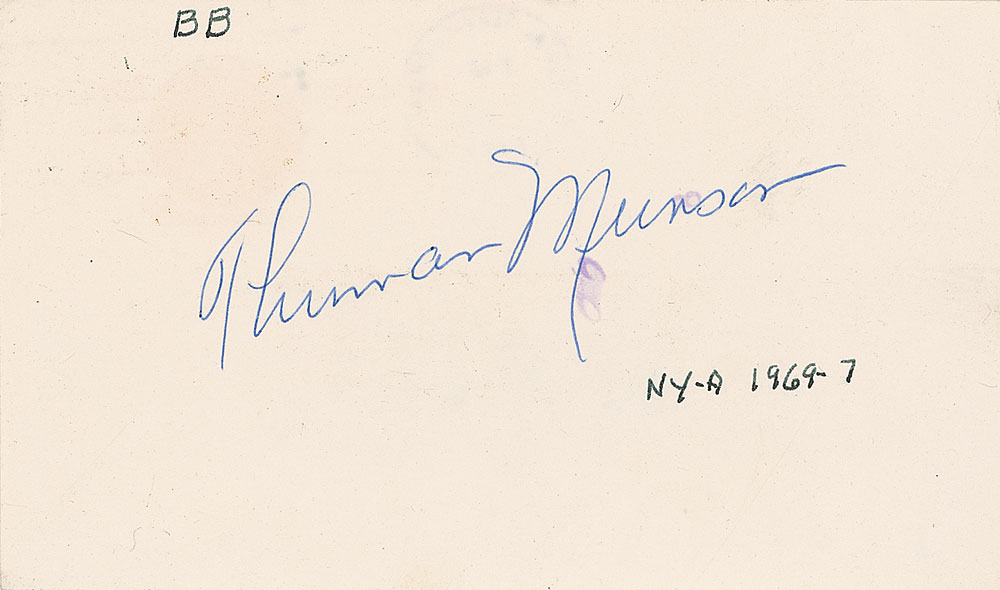 BB
Thurman Munson
NY-A 1969-7